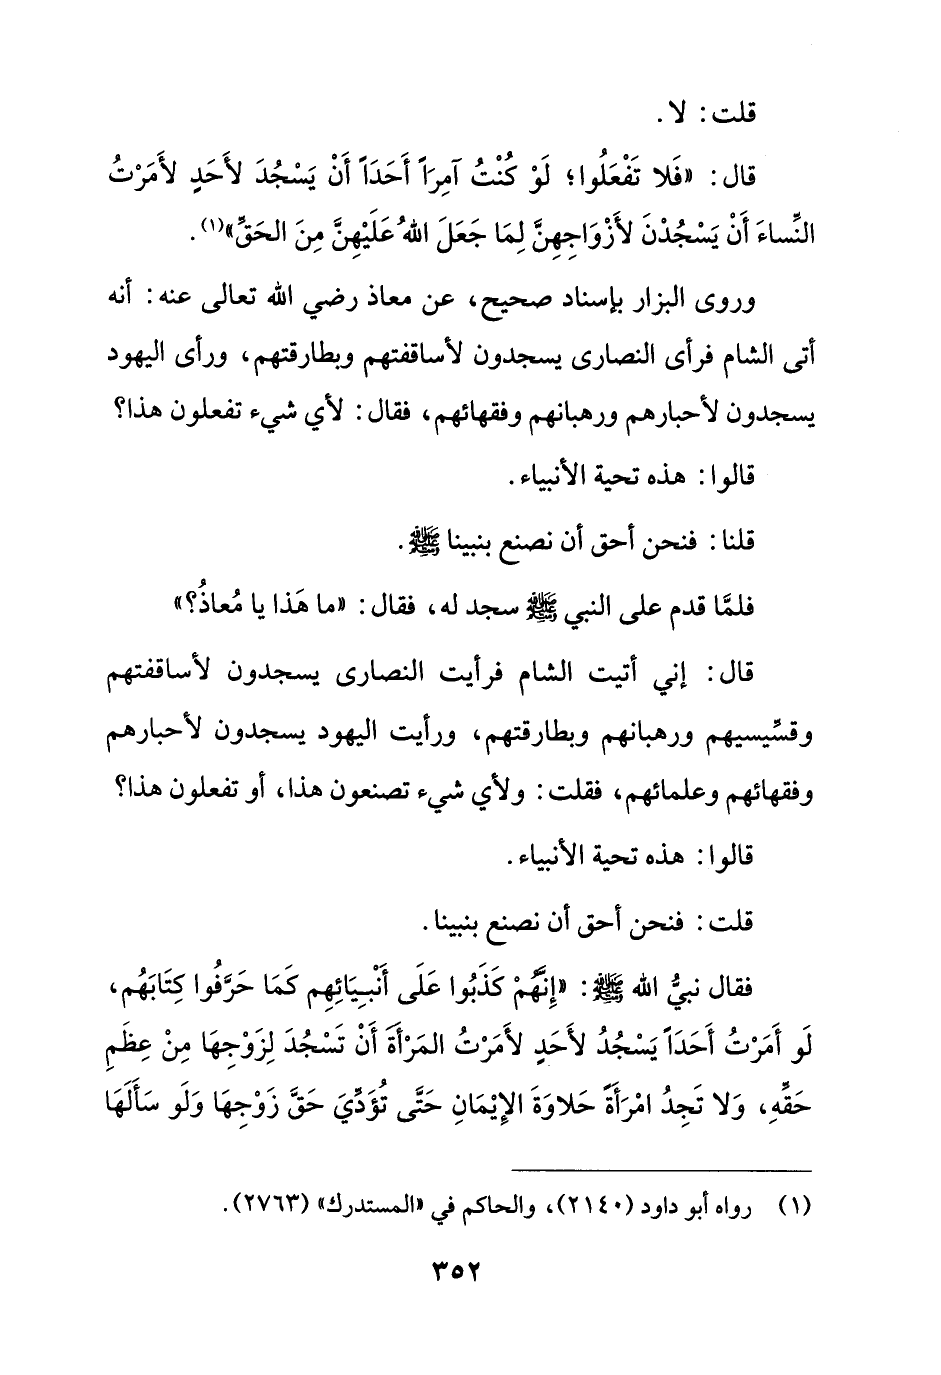 قلت: لا.
قال: «فَلا تَفْعَلُوا؛ لَوْ كُنْتُ آمِرَاً أَحَدَاً أَنْ يَسْجُدَ لأَحَدٍ لأَمَرْتُ
النِّساءَ أَنْ يَسْجُدْنَ لأَزْوَاجِهِنَّ لِمَا جَعَلَ اللهُ عَلَيْهِنَّ مِنَ الحَقِّ»(١).
وروى البزار بإسناد صحيح، عن معاذ رضي الله تعالى عنه: أنه
أتى الشام فرأى النصارى يسجدون لأساقفتهم وبطارقتهم، ورأى اليهود
يسجدون لأحبارهم ورهبانهم وفقهائهم، فقال: لأي شيء تفعلون هذا؟
قالوا: هذه تحية الأنبياء.
قلنا: فنحن أحق أن نصنع بنبينا ﷺ.
فلمَّا قدم على النبي ﷺ سجد له، فقال: «ما هَذا يا مُعاذُ؟»
قال: إني أتيت الشام فرأيت النصارى يسجدون لأساقفتهم
وقسِّيسيهم ورهبانهم وبطارقتهم، ورأيت اليهود يسجدون لأحبارهم
وفقهائهم وعلمائهم، فقلت: ولأي شيء تصنعون هذا، أو تفعلون هذا؟
قالوا: هذه تحية الأنبياء.
قلت: فنحن أحق أن نصنع بنبينا.
فقال نبيُّ الله ﷺ: «إِنَّهُمْ كَذَبُوا عَلَى أَنْبِيَائِهِم كَمَا حَرَّفُوا كِتَابَهُم،
لَو أَمَرْتُ أَحَدَاً يَسْجُدُ لأَحَدٍ لأَمَرْتُ المَرْأَةَ أَنْ تَسْجُدَ لِزَوْجِهَا مِنْ عِظَمِ
حَقِّهِ، وَلا تَجِدُ امْرَأَةٌ حَلاوَةَ الإِيْمَانِ حَتَّى تُؤَدِّيَ حَقَّ زَوْجِهَا وَلَو سَأَلَهَا
(١) رواه أبو داود (٢١٤٠)، والحاكم في «المستدرك» (٢٧٦٣).
٣٥٢